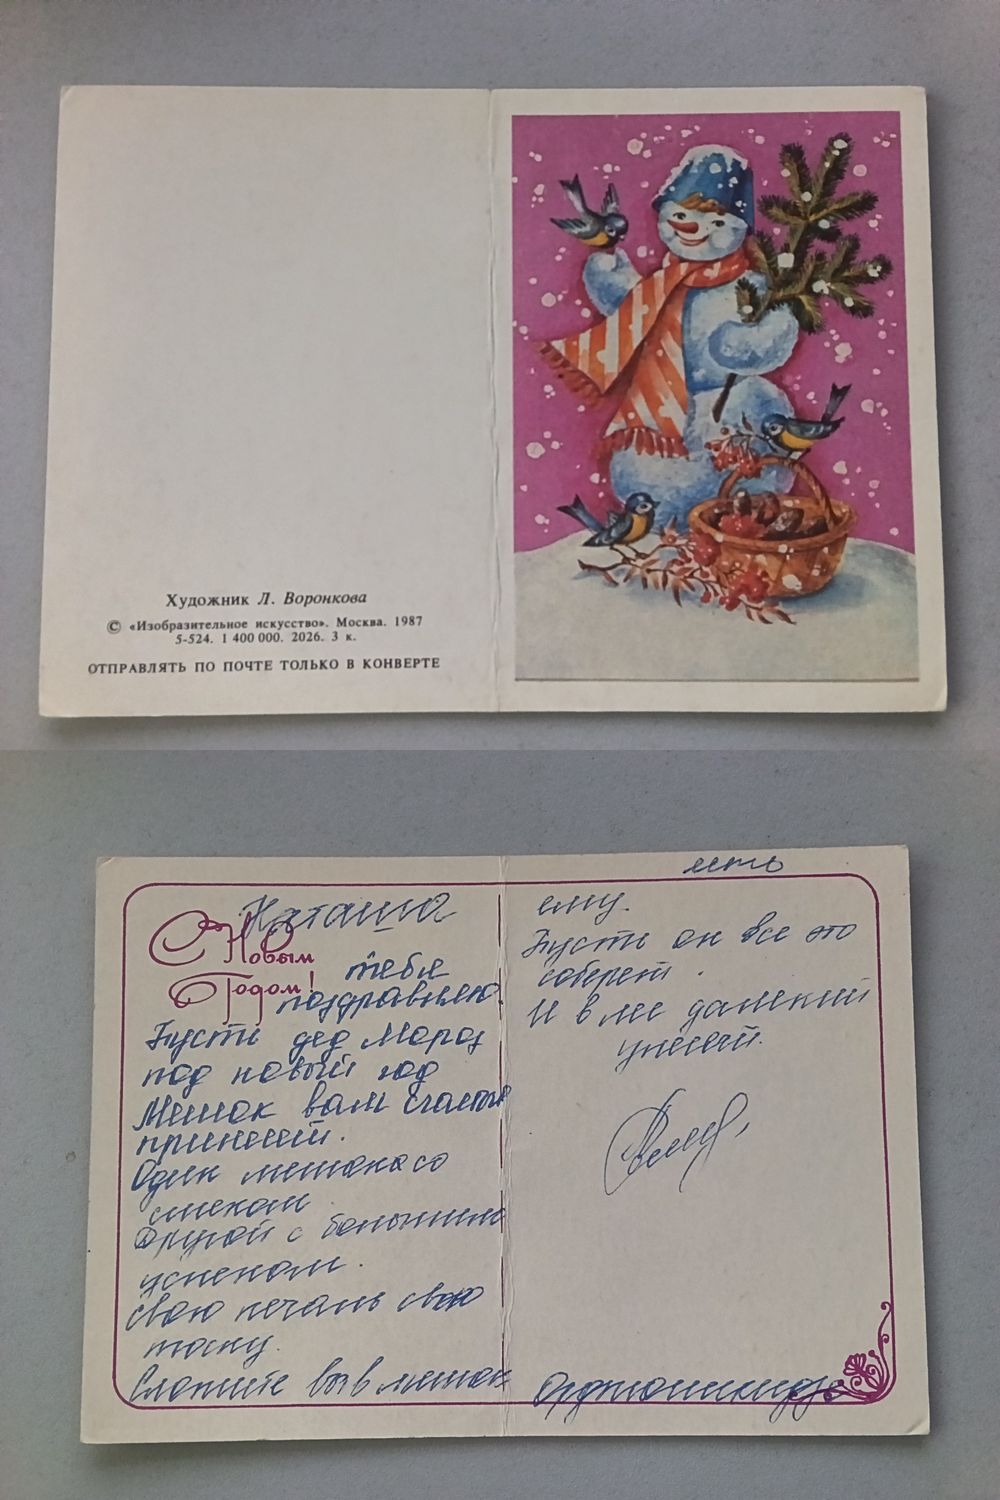 Художник Л. Воронкова
© «Изобразительное искусство». Москва. 1987
5-524. 1 400 000. 2026. 3 к.
ОТПРАВЛЯТЬ ПО ПОЧТЕ ТОЛЬКО В КОНВЕРТЕ
Наташа
С Новым
Годом!
тебя
поздравляю.
Пусть дед Мороз
под новый год
Мешок вам счастья
принесёт.
Один мешок со
смехом
другой с большим
успехом.
Свою печаль свою
тоску.
Сложите вы в мешок
ему.
Пусть он все это
соберет.
И в лес далекий
унесёт.
Орджоникидзе